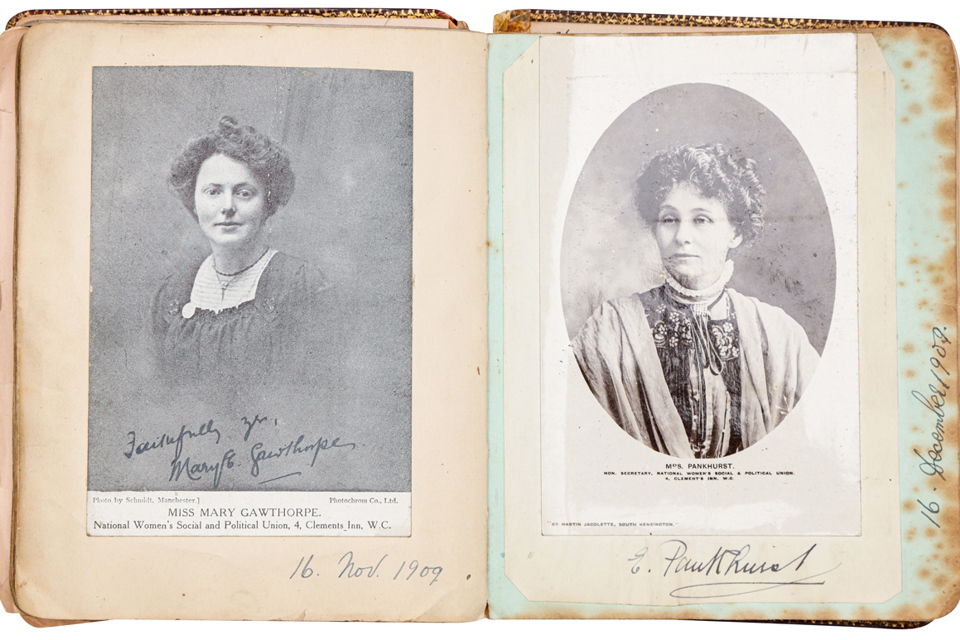 Faithfully yrs,
Mary E. Gawthorpe.
Photo by Schmidt, Manchester.]
Photochrom Co., Ltd.
MISS MARY GAWTHORPE.
National Women's Social and Political Union, 4, Clements Inn, W.C.
16. Nov. 1909
MRS. PANKHURST.
HON. SECRETARY, NATIONAL WOMEN'S SOCIAL & POLITICAL UNION.
4, CLEMENT'S INN, W.C.
MARTIN JACOLETTE, SOUTH KENSINGTON.
E. Pankhurst
16. December, 1909.